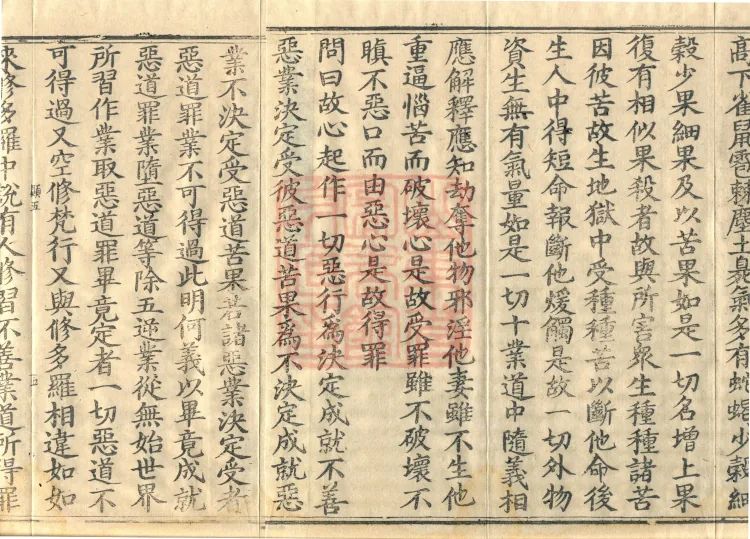 高下雀鼠雹棘塵土臭氣多有蝗蟲少穀細
穀少果細果及以苦果如是一切名增上果
復有相似果殺者故與所害衆生種種諸苦
因彼苦故生地獄中受種種苦以斷他命後
生人中得短命報斷他煖觸是故一切外物
資生無有氣量如是一切十業道中隨義相
應解釋應知劫奪他物邪婬他妻雖不生他
重逼惱苦而破壞心是故受罪雖不破壞不
瞋不惡口而由惡心是故得罪
問曰故心起作一切惡行爲決定成就不善
惡業決定受彼惡道苦果爲不決定成就惡
業不決定受惡道苦果若諸惡業決定受者
惡道罪業不可得過此明何義以畢竟成就
惡道罪業隨惡道等除五逆業從無始世界
所習作業取惡道罪畢竟定者一切惡道不
可得過又空修梵行又與修多羅相違如如
來修多羅中說有人修習不善業道所得罪